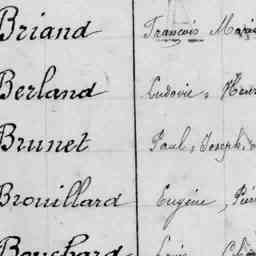 Briand François Marie
Berland Ludovic, Henri
Brunet Paul, Joseph,
Brouillard Eugène,
Bouchard Louis